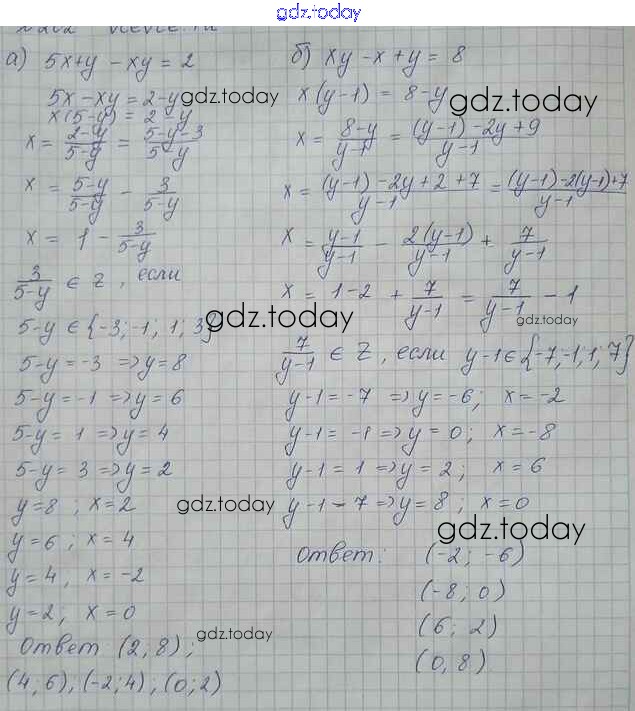 gdz.today
а) 5x+y - xy = 2
5x - xy = 2-y
x(5-y) = 2-y
x = \frac{2-y}{5-y} = \frac{5-y-3}{5-y}
x = \frac{5-y}{5-y} - \frac{3}{5-y}
x = 1 - \frac{3}{5-y}
\frac{3}{5-y} ∈ Z, если
5-y ∈ {-3; -1; 1; 3}
5-y = -3 => y = 8
5-y = -1 => y = 6
5-y = 1 => y = 4
5-y = 3 => y = 2
y=8 ; x=2
y=6 ; x=4
y=4, x=-2
y=2; x=0
Ответ (2, 8);
(4; 6), (-2; 4); (0; 2)
б) xy - x + y = 8
x(y-1) = 8-y
x = \frac{8-y}{y-1} = \frac{(y-1)-2y+9}{y-1}
x = \frac{(y-1)-2y+2+7}{y-1} = \frac{(y-1)-2(y-1)+7}{y-1}
x = \frac{y-1}{y-1} - \frac{2(y-1)}{y-1} + \frac{7}{y-1}
x = 1-2 + \frac{7}{y-1} = \frac{7}{y-1} - 1
\frac{7}{y-1} ∈ Z, если y-1 ∈ {-7,-1,1; 7}
y-1 = -7 => y = -6; x = -2
y-1 = -1 => y = 0; x = -8
y-1 = 1 => y = 2; x = 6
y-1 - 7 => y = 8; x = 0
Ответ: (-2; -6)
(-8; 0)
(6; 2)
(0, 8)
gdz.today
gdz.today
gdz.today
gdz.today
gdz.today
gdz.today
gdz.today